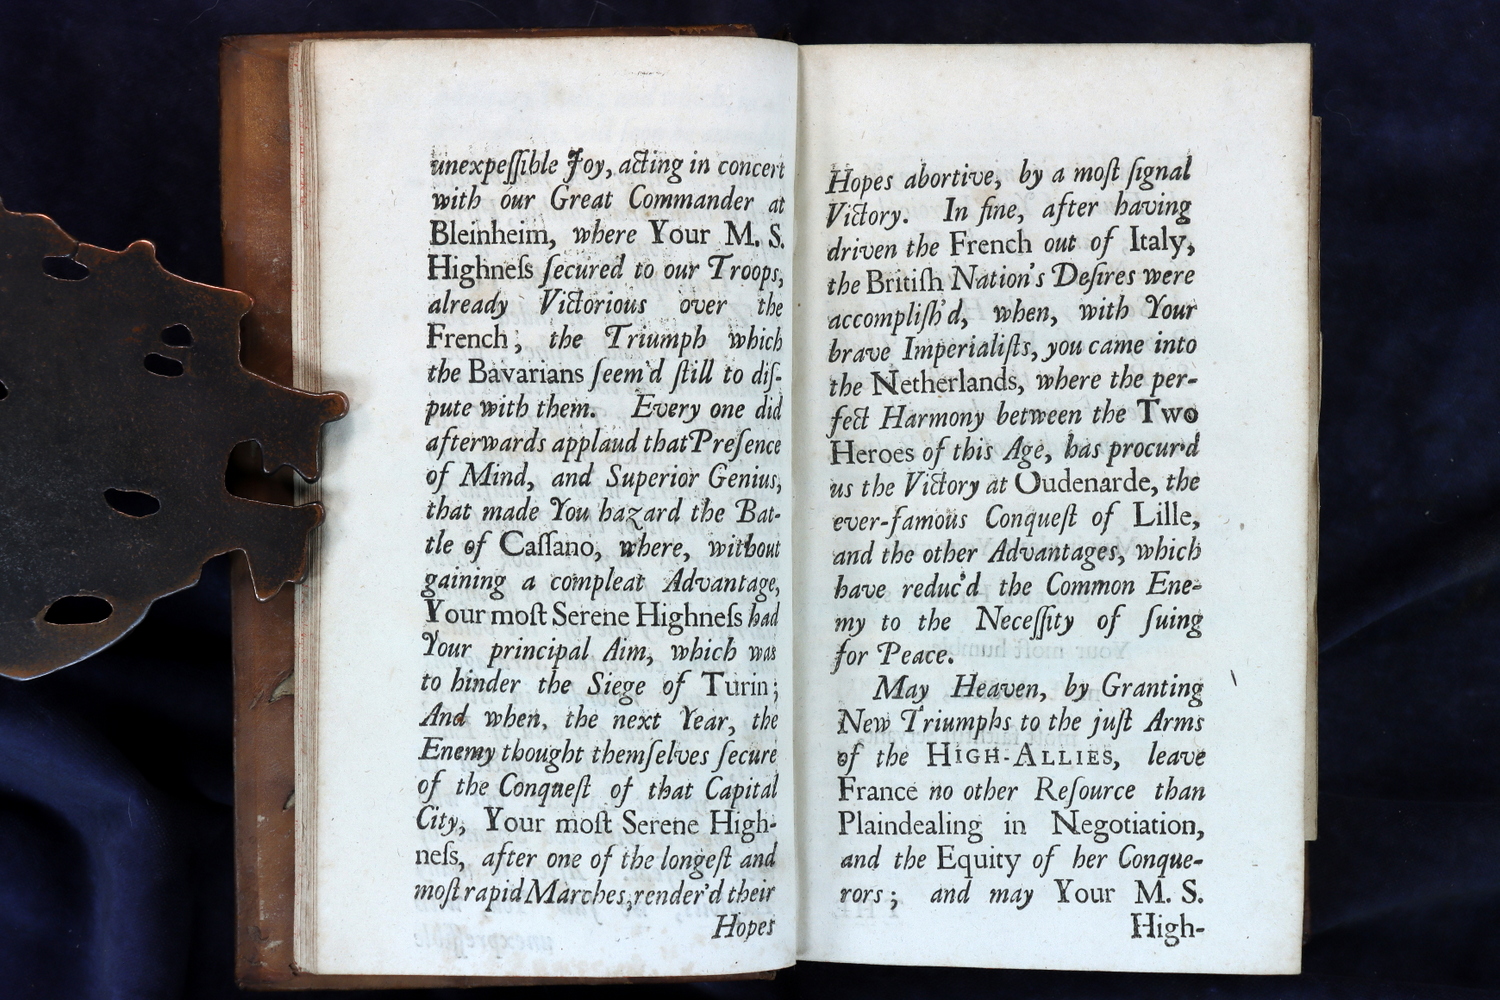 unexpeſſible Joy, acting in concert
with our Great Commander at
Bleinheim, where Your M. S.
Highneſs ſecured to our Troops,
already Victorious over the
French; the Triumph which
the Bavarians ſeem'd ſtill to diſ-
pute with them. Every one did
afterwards applaud that Preſence
of Mind, and Superior Genius,
that made You hazard the Bat-
tle of Caſſano, where, without
gaining a compleat Advantage,
Your moſt Serene Highneſs had
Your principal Aim, which was
to hinder the Siege of Turin;
And when, the next Year, the
Enemy thought themſelves ſecure
of the Conqueſt of that Capital
City, Your moſt Serene High-
neſs, after one of the longeſt and
moſt rapid Marches, render'd their
Hopes
Hopes abortive, by a moſt ſignal
Victory. In fine, after having
driven the French out of Italy,
the Britiſh Nation's Deſires were
accompliſh'd, when, with Your
brave Imperialiſts, you came into
the Netherlands, where the per-
fect Harmony between the Two
Heroes of this Age, has procur'd
us the Victory at Oudenarde, the
ever-famous Conqueſt of Lille,
and the other Advantages, which
have reduc'd the Common Ene-
my to the Neceſſity of ſuing
for Peace.
May Heaven, by Granting
New Triumphs to the juſt Arms
of the HIGH-ALLIES, leave
France no other Reſource than
Plaindealing in Negotiation,
and the Equity of her Conque-
rors; and may Your M. S.
High-